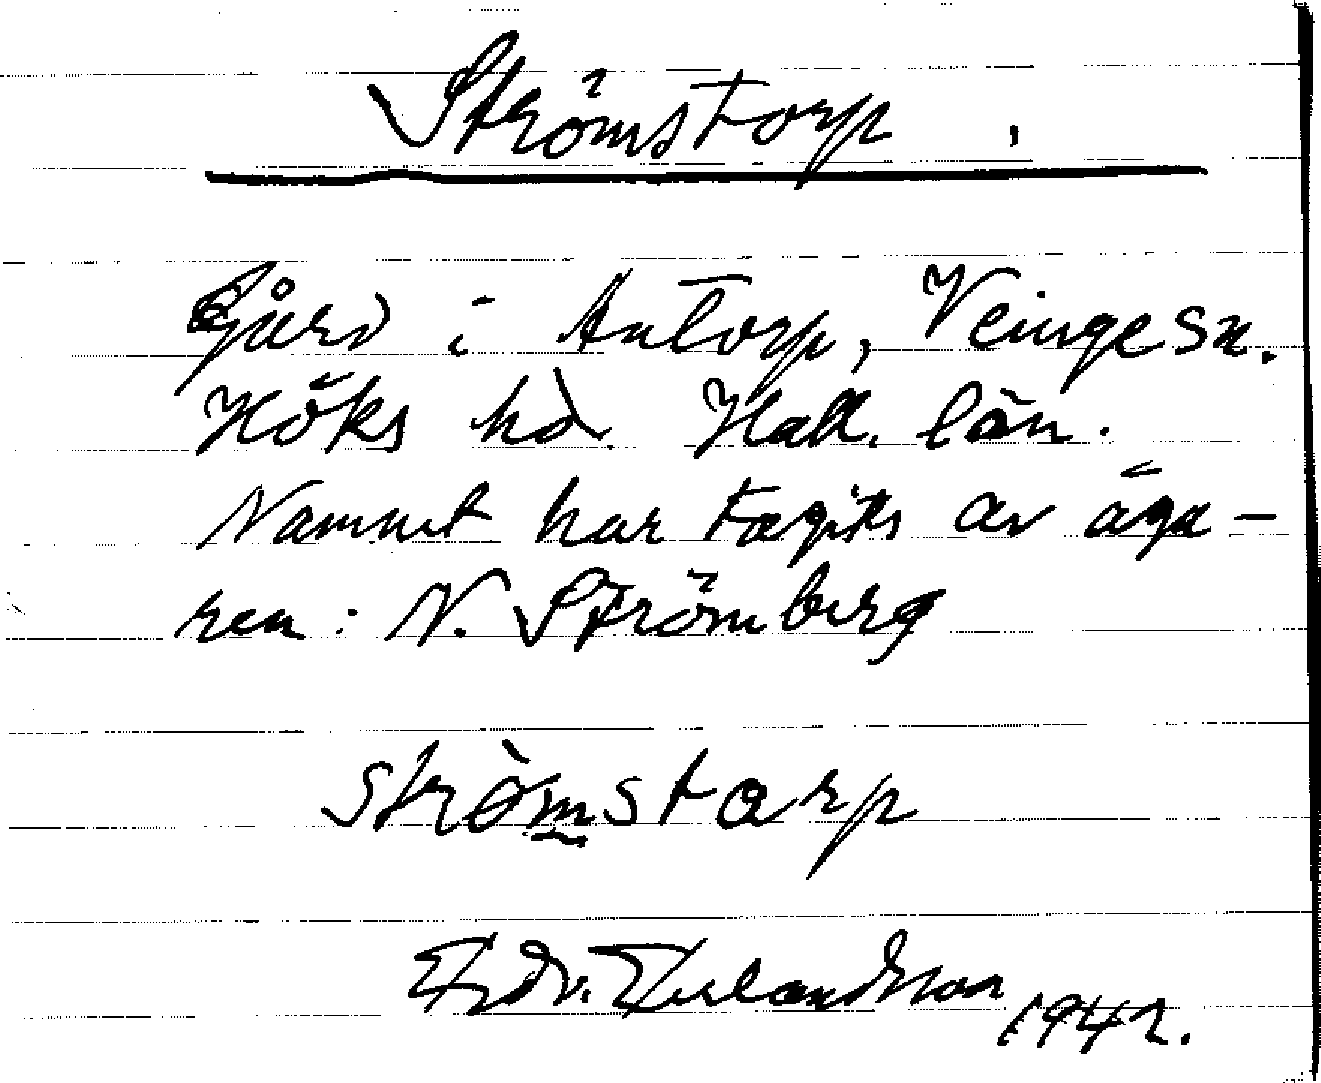 Strömstorp
Gård i Antorp, Veinge sn.
Höks hd. Hall. län.
Namnet har tagits av äga-
ren: N. Strömberg
strömstarp
Edv. Erlandsson
1942.